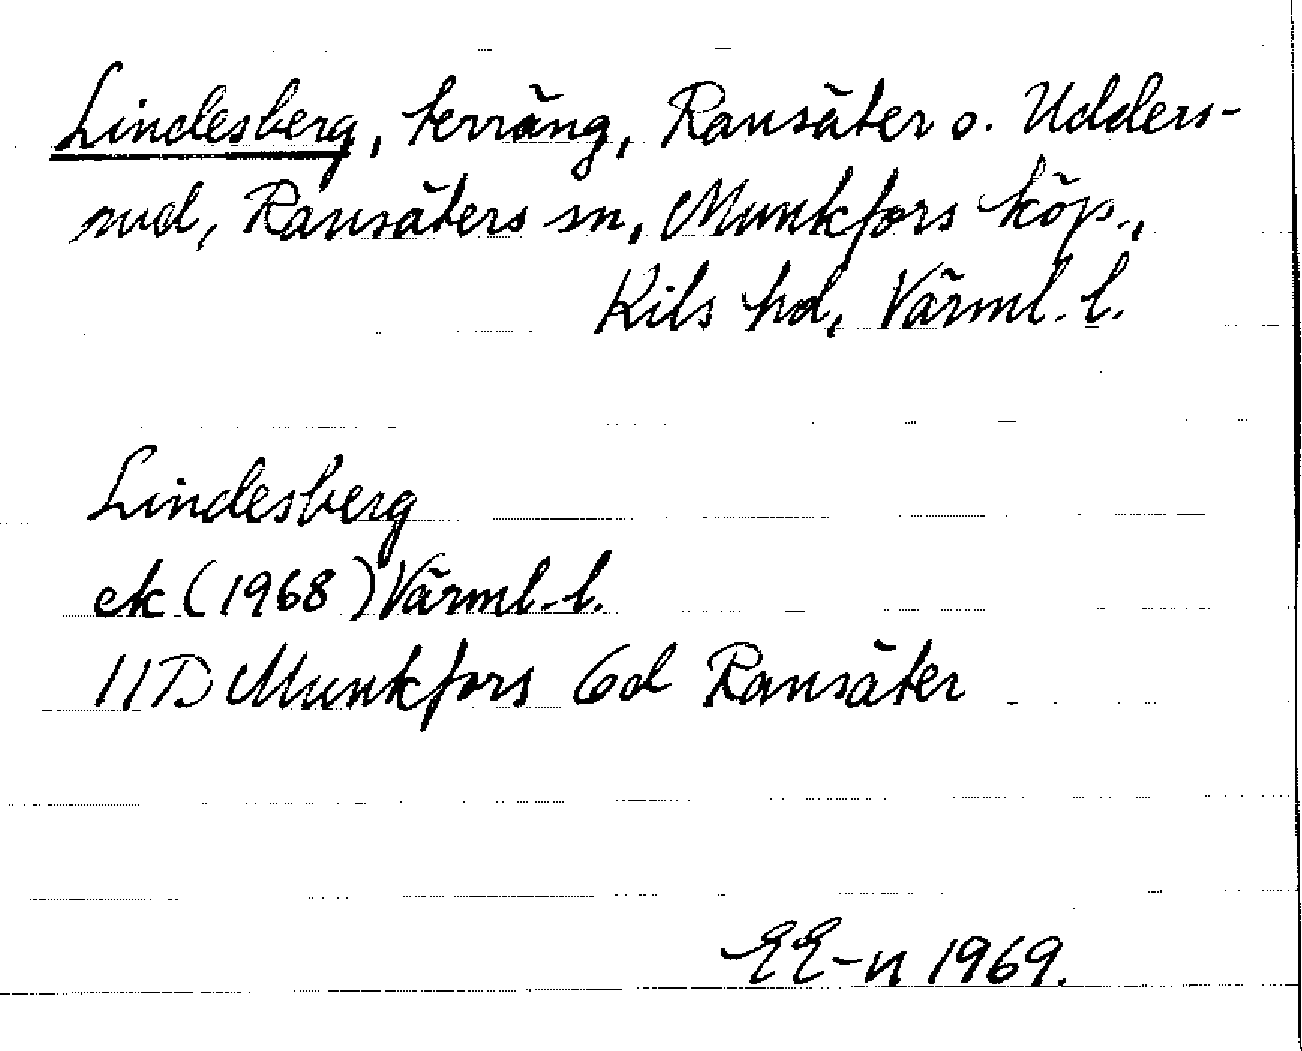 Lindesberg, terräng, Ransäter o. Udders-
rud, Ransäters sn, Munkfors köp.,
Kils hd, Värml. l.
Lindesberg
ek (1968) Värml. l.
11D Munkfors 6d Ransäter
EE-n 1969.